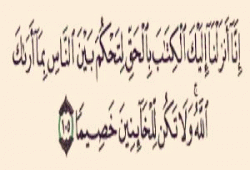 إِنَّآ أَنزَلْنَآ إِلَيْكَ ٱلْكِتَٰبَ بِٱلْحَقِّ لِتَحْكُمَ بَيْنَ ٱلنَّاسِ بِمَآ أَرَىٰكَ
ٱللَّهُ ۚ وَلَا تَكُن لِّلْخَآئِنِينَ خَصِيمًا ١٠٥